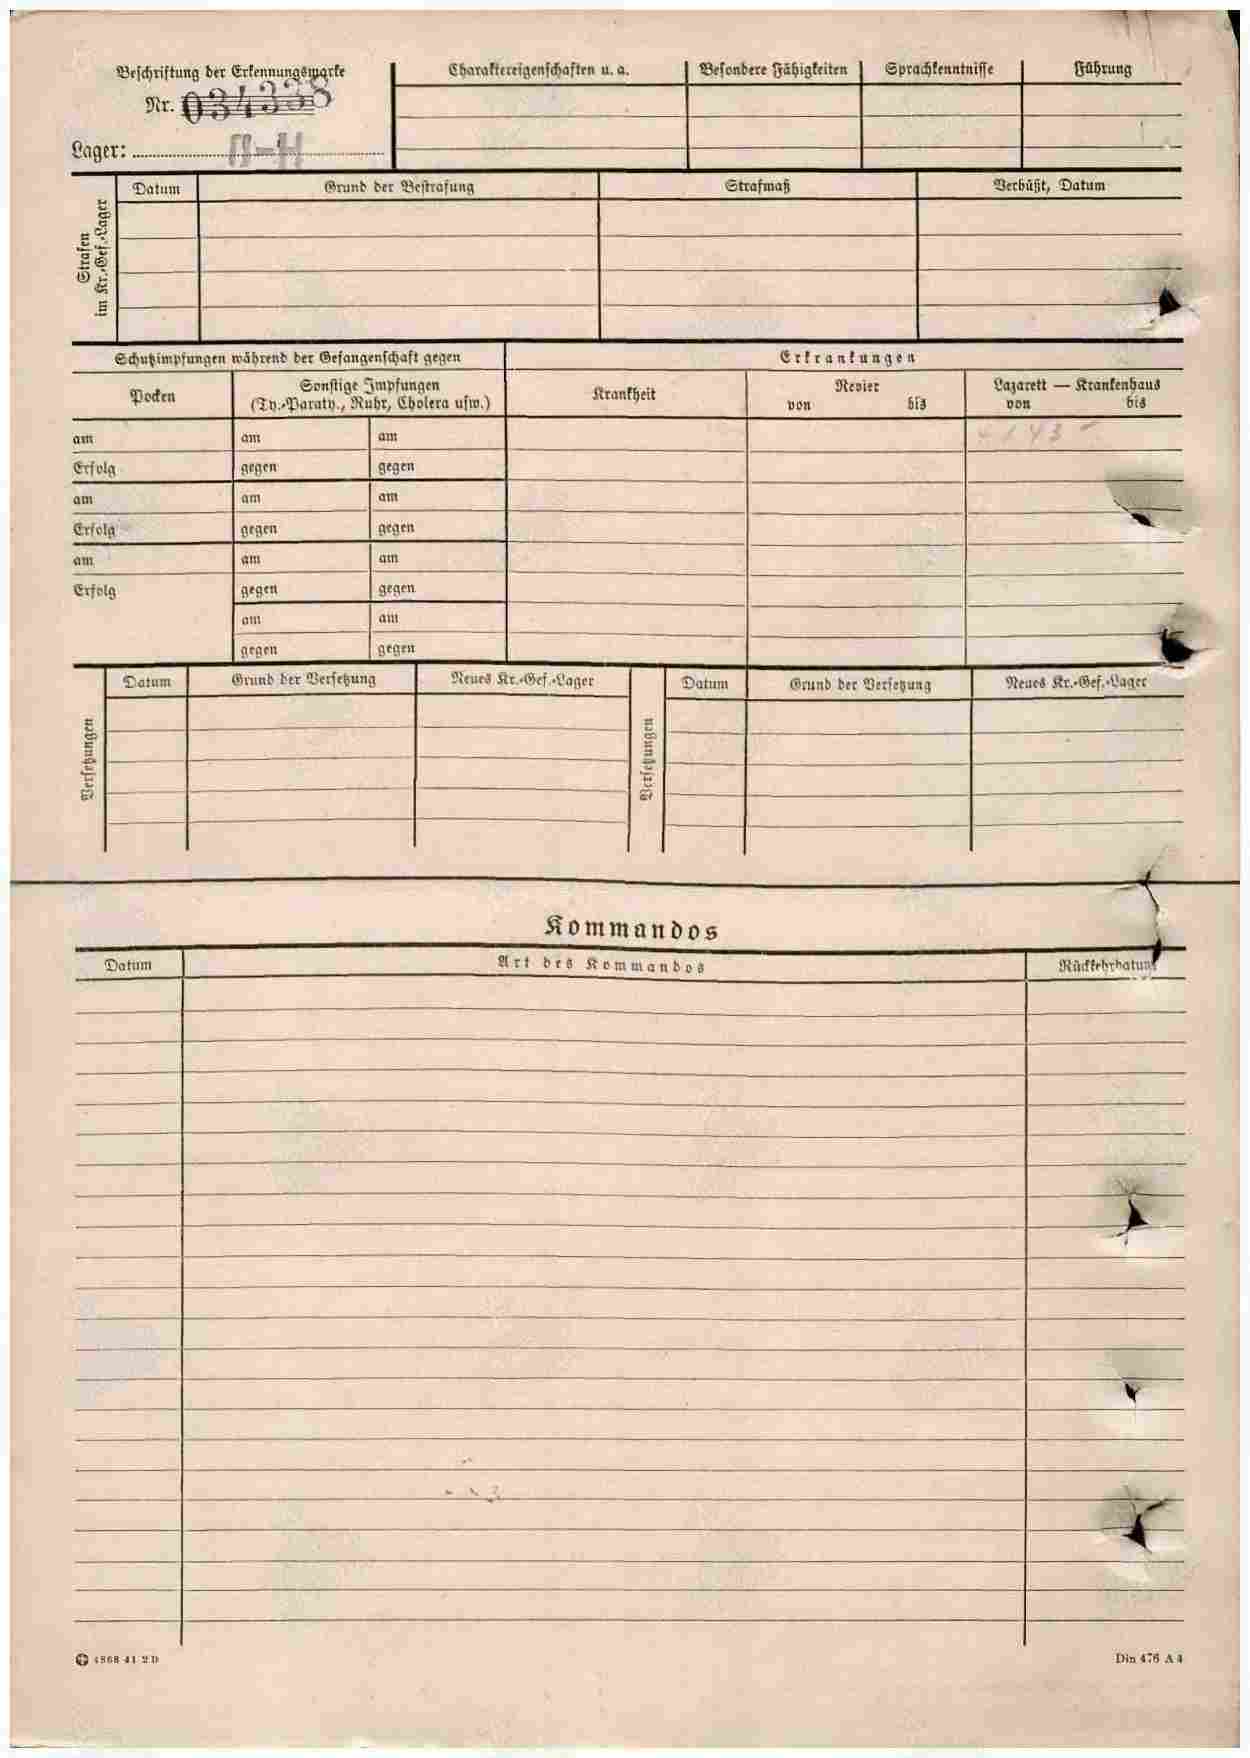 Beschriftung der Erkennungsmarke
Nr. 034338
Lager:
Charaktereigenschaften u. a.
Besondere Fähigkeiten
Sprachkenntnisse
Führung
Strafen
im Kr.-Gef.-Lager
Datum
Grund der Bestrafung
Strafmaß
Verbüßt, Datum
Schutzimpfungen während der Gefangenschaft gegen
Erkrankungen
Pocken
Sonstige Impfungen
(Ty.-Paraty., Ruhr, Cholera usw.)
Krankheit
Revier
von bis
Lazarett — Krankenhaus
von bis
am am am
Erfolg gegen gegen
am am am
Erfolg gegen gegen
am am am
Erfolg gegen gegen
am am
gegen gegen
Versetzungen
Datum
Grund der Versetzung
Neues Kr.-Gef.-Lager
Versetzungen
Datum
Grund der Versetzung
Neues Kr.-Gef.-Lager
Kommandos
Datum
Art des Kommandos
Rückkehrdatum
4868 41 2D
Din 476 A 4